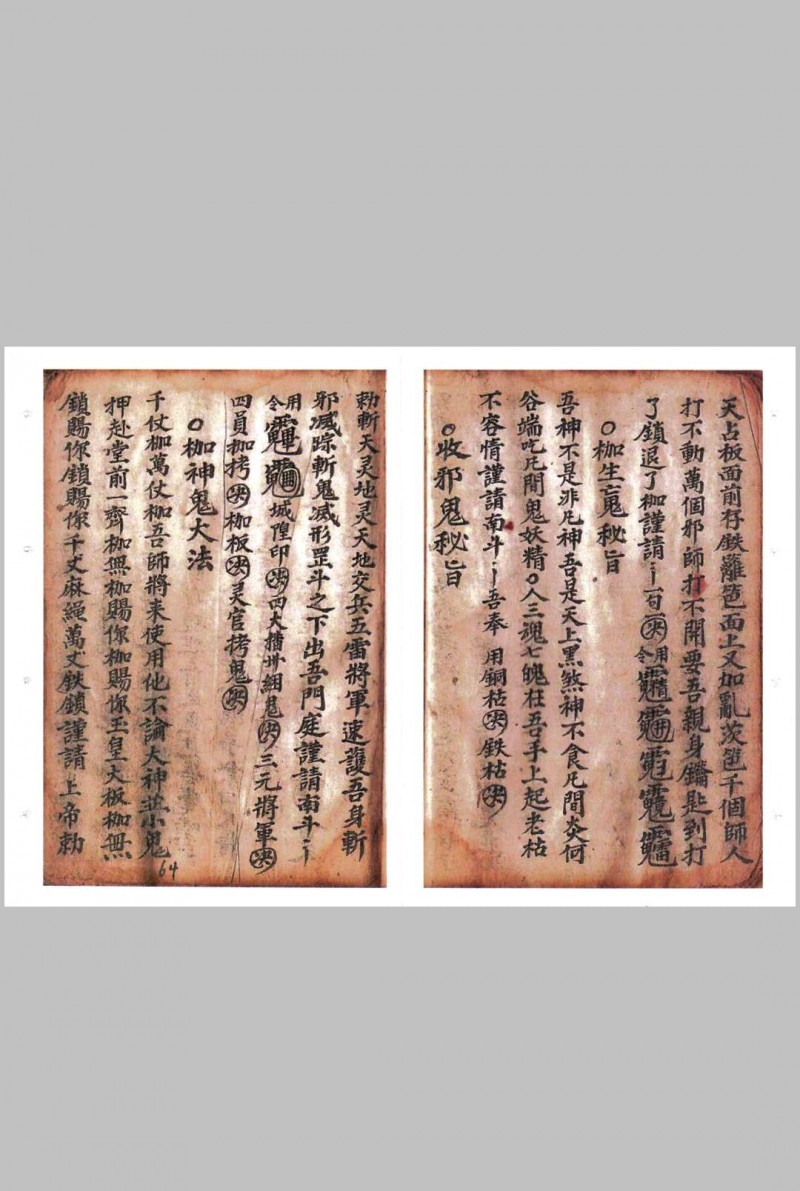 天占板面前存鉄籬笆面上又加亂茨笆千個師人
打不動萬個邪師打不開要吾親身鑰匙到打
了鎖退了枷謹請 一句 用令
枷生䰟秘旨
吾神不是非凡神吾是天上黑煞神不食凡間炎何
谷端吃凡間鬼妖精人三魂七魄在吾手上起老枯
不容情謹請南斗 吾奉 用銅枯 鉄枯
收邪鬼秘旨
勅斬天灵地灵天地交兵五雷將軍速護吾身斬
邪滅踪斬鬼滅形罡斗之下出吾門庭謹請南斗
用令 城隍印 四大 綑鬼 三元將軍
四員枷拷 枷板 灵官拷鬼
枷神鬼大法
千仗枷萬仗枷吾師將来使用他不論大神並小鬼
押赴堂前一齊枷無枷賜你枷賜你玉皇大板枷無
鎖賜你鎖賜你千丈麻繩萬丈鉄鎖謹請上帝勅
64